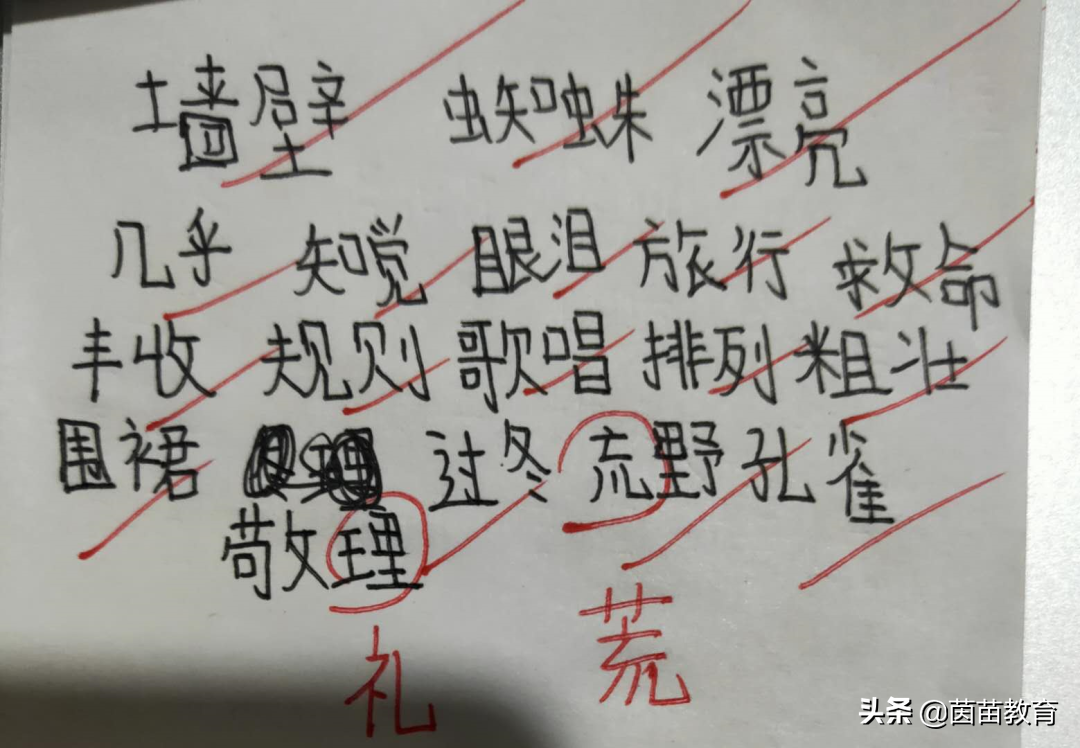 墙壁 蜘蛛 漂亮
几乎 知觉 眼泪 旅行 救命
丰收 规则 歌唱 排列 粗壮
围裙 过冬 㐬野 孔雀
敬理
礼 荒
头条 @茵苗教育